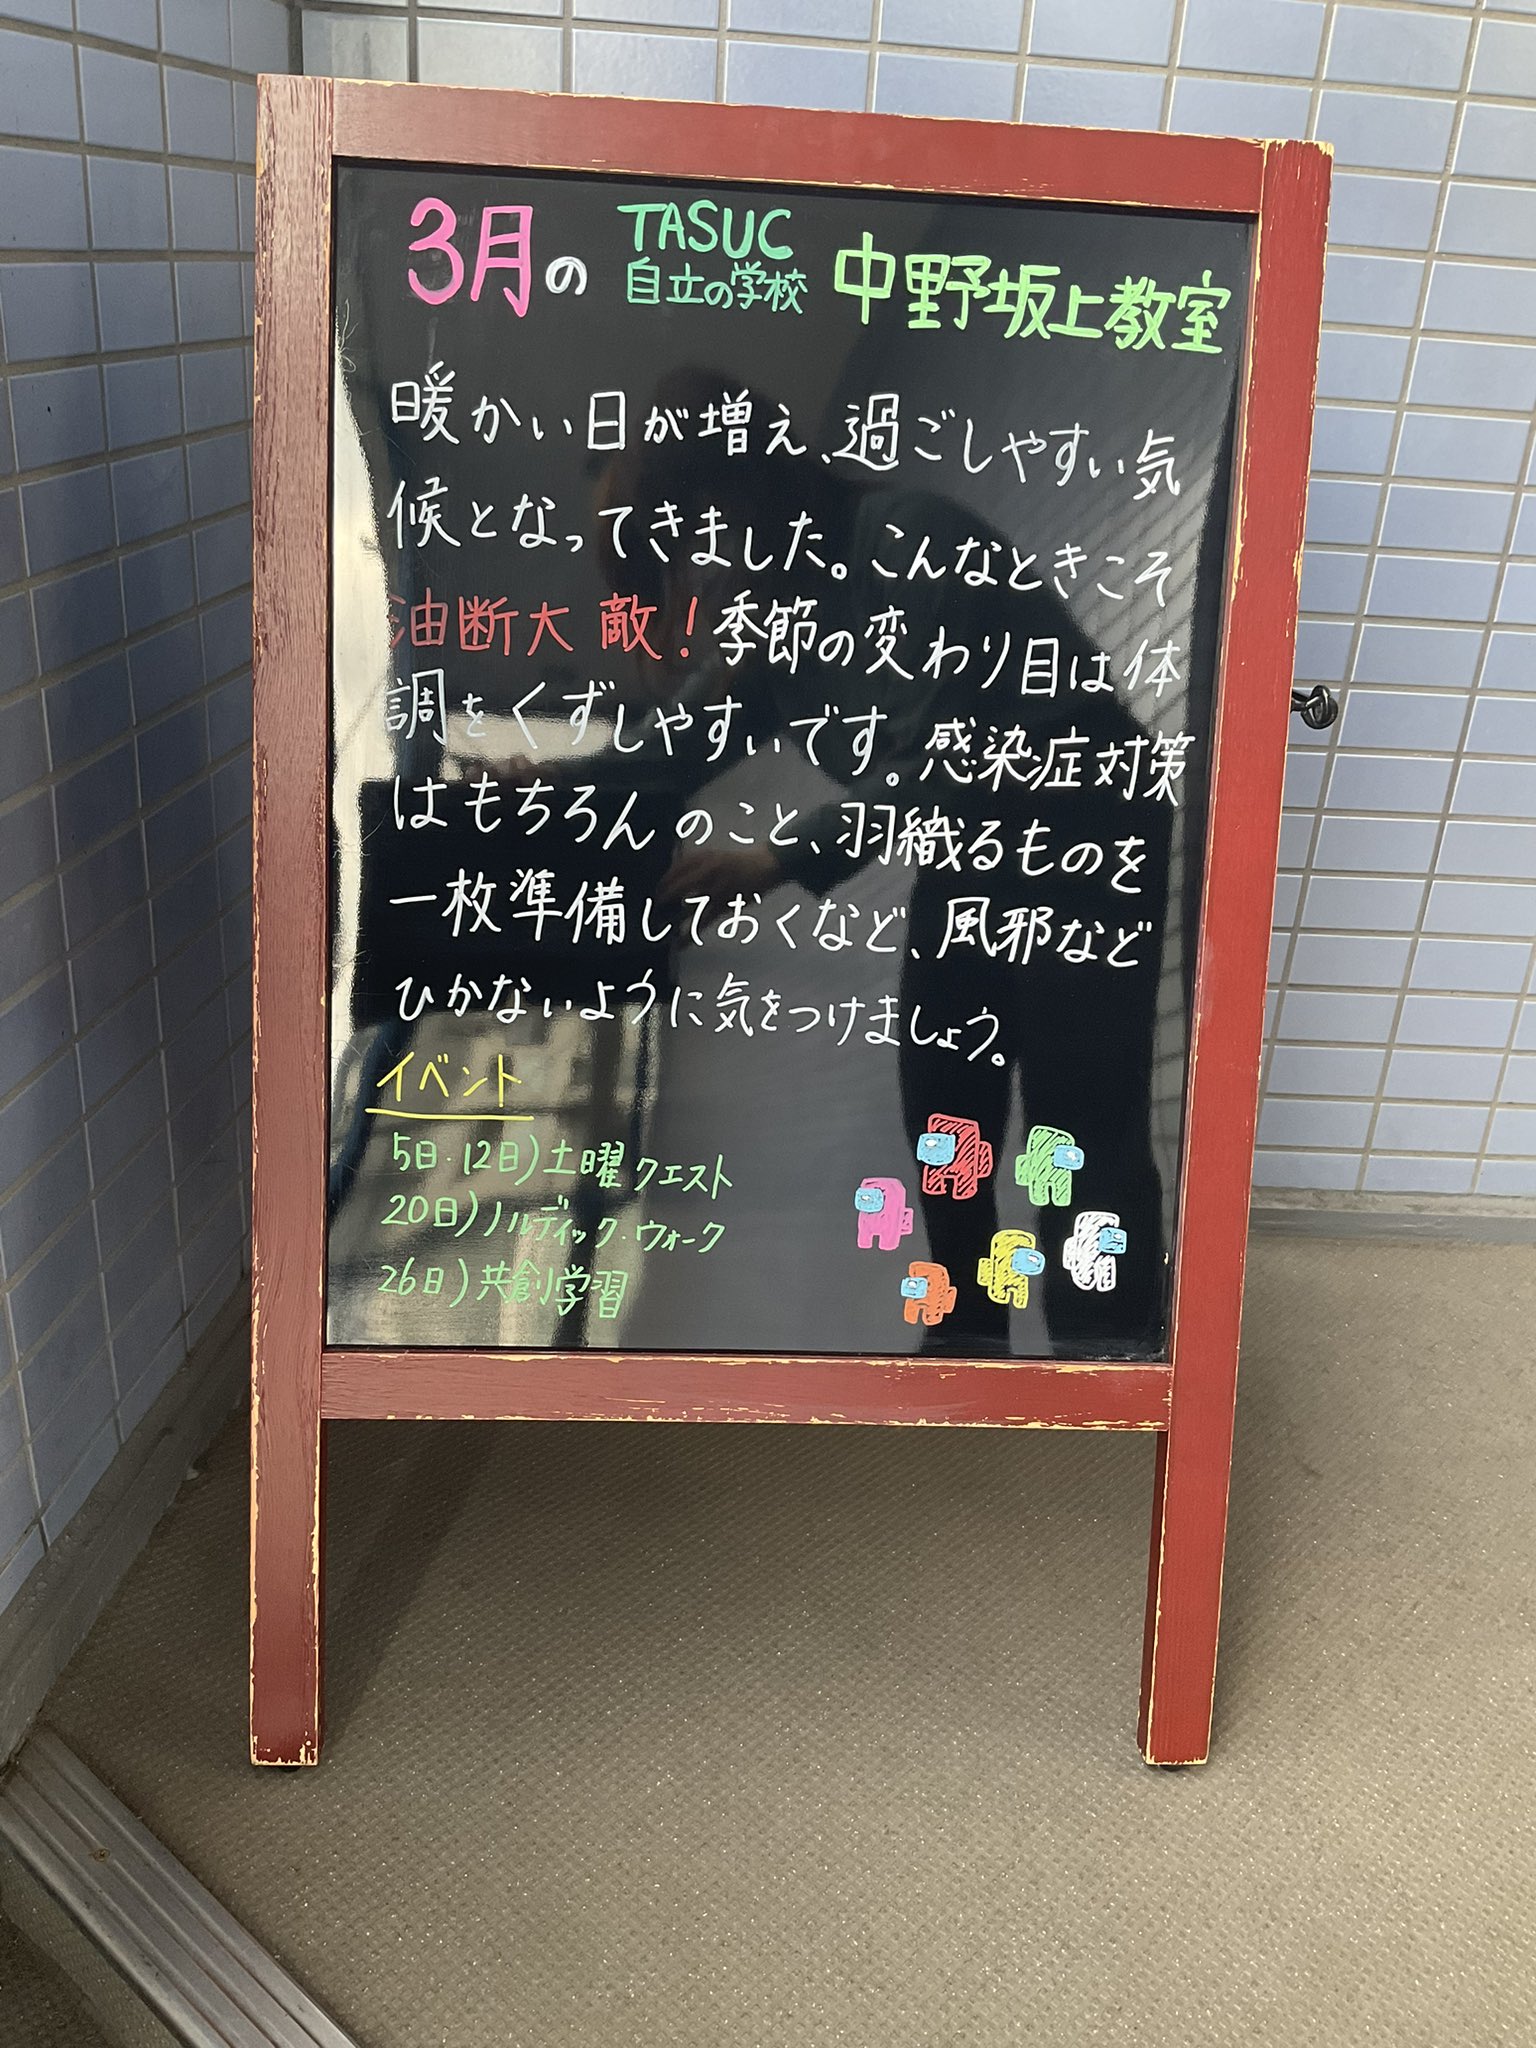 3月の TASUC 自立の学校 中野坂上教室
暖かい日が増え、過ごしやすい気
候となってきました。こんなときこそ
油断大敵！季節の変わり目は体
調をくずしやすいです。感染症対策
はもちろんのこと、羽織るものを
一枚準備しておくなど、風邪など
ひかないように気をつけましょう。
イベント
5日・12日)土曜クエスト
20日)ノルディック・ウォーク
26日)共創学習